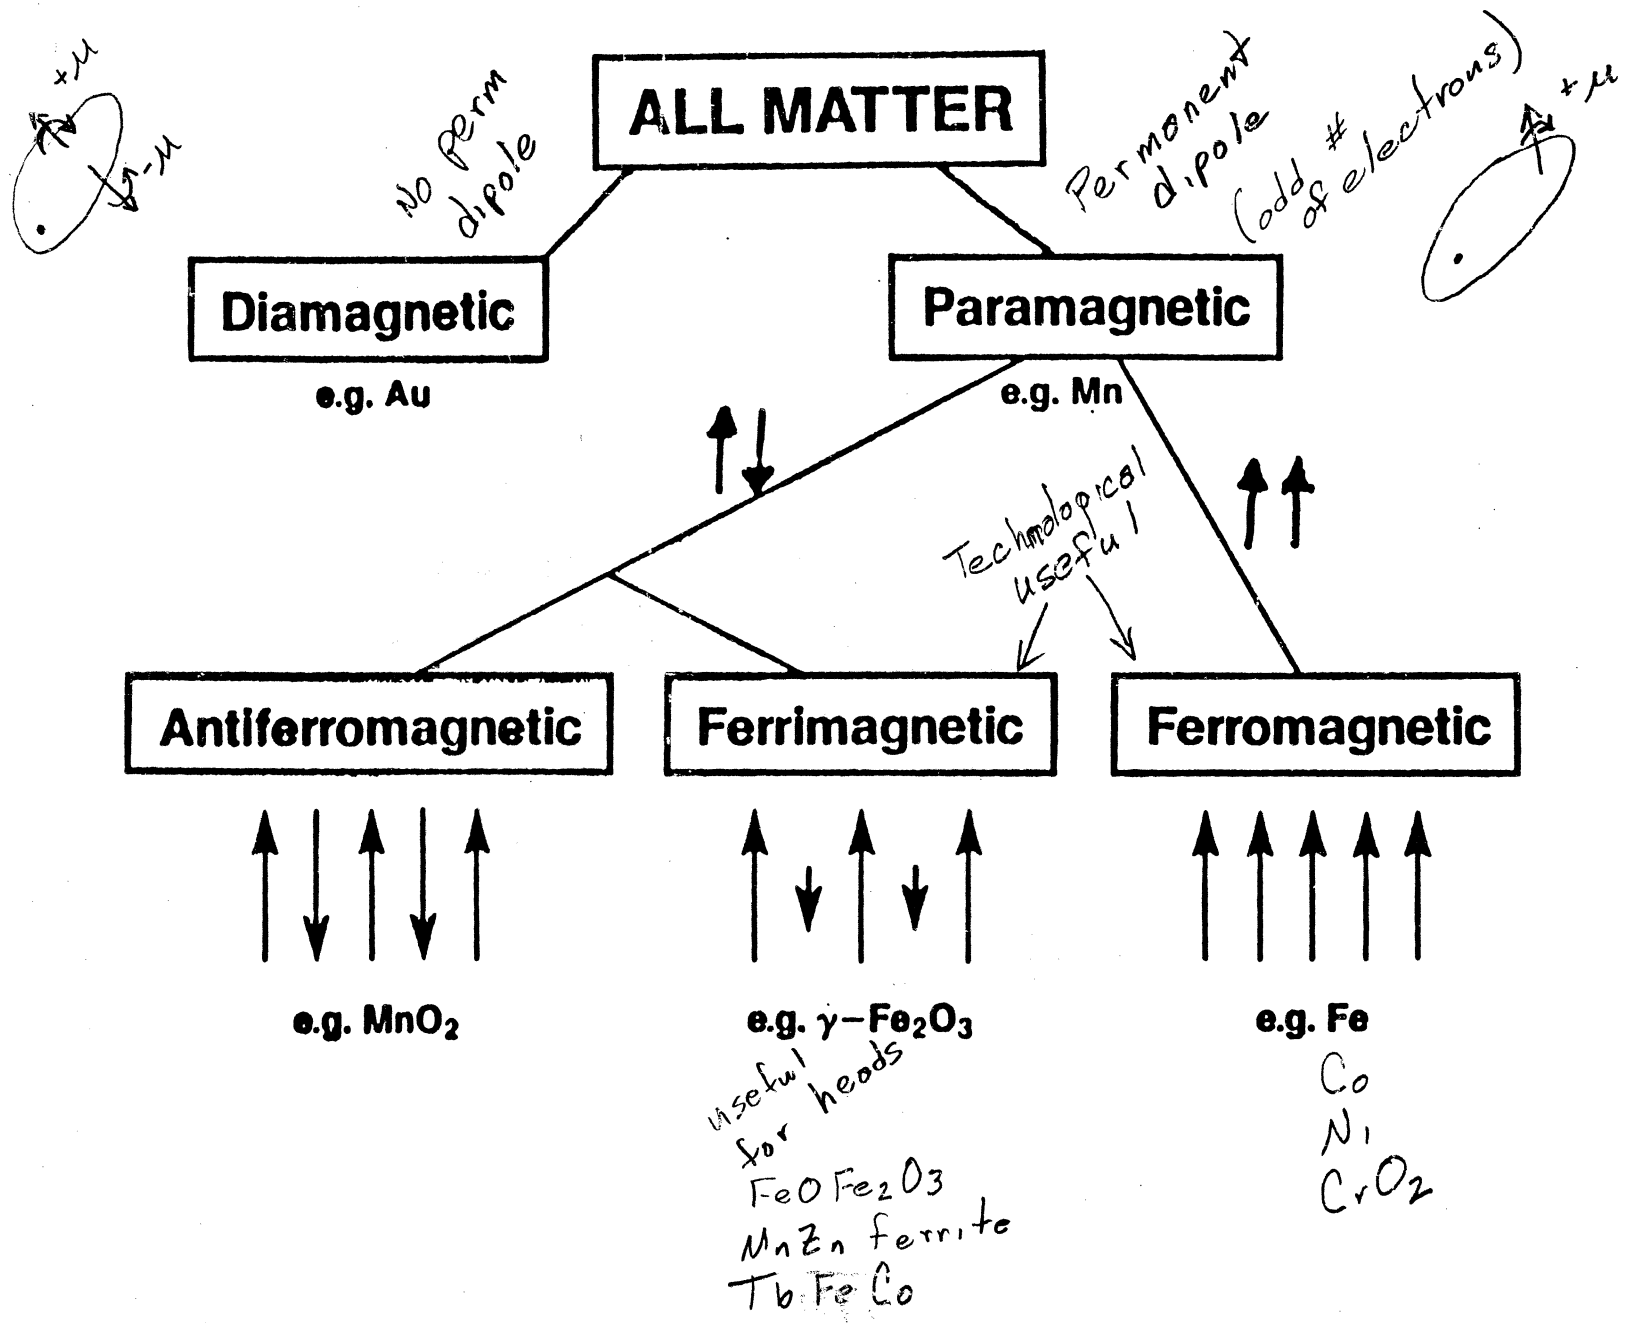 +μ
-μ
No perm
dipole
ALL MATTER
Permonent
dipole
(odd #
of electrons)
+μ
Diamagnetic
e.g. Au
Paramagnetic
e.g. Mn
Technological
useful
Antiferromagnetic
Ferrimagnetic
Ferromagnetic
e.g. MnO₂
e.g. γ–Fe₂O₃
e.g. Fe
useful
for heads
FeO Fe₂O₃
MnZn ferrite
Tb Fe Co
Co
Ni
CrO₂